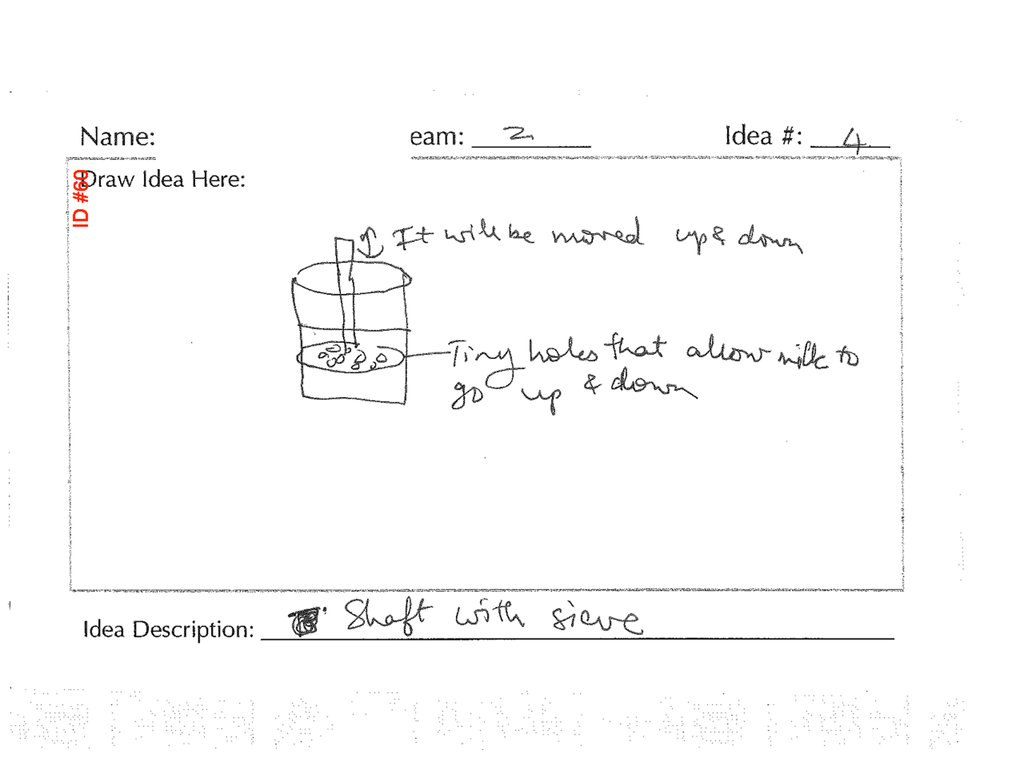 Name: eam: 2 Idea #: 4
ID #69
Draw Idea Here:
It will be moved up & down
Tiny holes that allow milk to
go up & down
Idea Description: Shaft with sieve